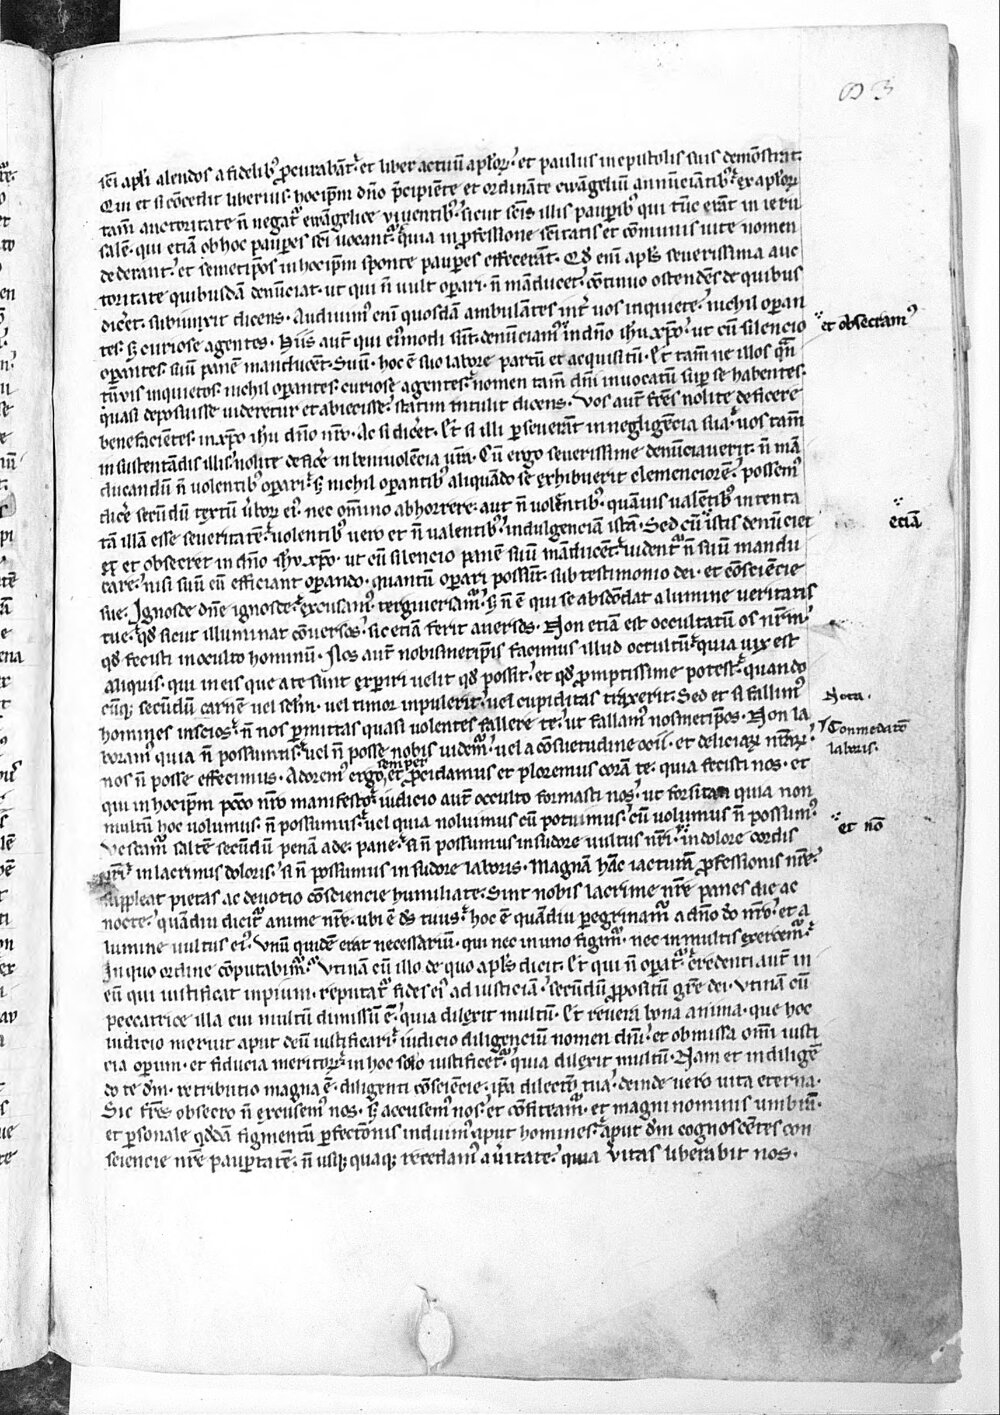 sc̄i apl̄i alendos a fidelib᷒ ꝓcurabāt᷒. et liber actuū apl̄oꝝ. et paulus in epistolis suis demōstrāt.
Qui et si ꝯcedit liberius. hoc ip̄m dn̄o p̄cipiēte et ordināte ewāgeliū annūciātib᷒. ex apl̄oꝝ
tam̄ auctoritate n̄ negat᷒ ewāgelice viuentib᷒. sicut sc̄is illis paupib᷒ qui tūc erāt in ieru
salē. qui etiā ob hoc paupes sc̄i vocant᷒. quia in ꝓfessione sc̄itatis et cōmunis vite nomen
dederant. et semetip̄os in hoc ip̄m sponte paupes effecerāt. Qd̄ eni᷒ apl̄s seuerissima auc
toritate quibusdā denūciat. ut qui n̄ vult oꝑari. n̄ māducet. ꝯtinuo ostendēs de quibus
dicet. subiunxit dicens. Audiuim᷒ eni᷒ quosdā ambulātes int᷒ vos inquiete. nichil oꝑan
tes. sꝫ curiose agentes. Hiis aut᷒ qui ei᷒modi sūt. denūciam᷒ in dn̄o ih̄u xp̄o. ut cū silencio
oꝑantes. suū panē manducent. Suū. hoc ē suo labore partū et acquisitū. Et tam̄ ne illos qn̄
tūvis inquietos. nichil oꝑantes. curiose agentes. nomen tam̄ dn̄i inuocatū suꝑ se habentes.
quasi deposuisse videretur et abiecisse. statim intulit dicens. Vos aut᷒ frēs nolite deficere
benefaciētes. in xp̄o ih̄u dn̄o nr̄o. Ac si dicet. Et si illi ꝑseuerāt in negligēcia sua. vos tam̄
in sustentādis illis. nolite deficē in beniuolēcia vr̄a. Cū ergo seuerissime denūciauerit. n̄ mā
ducandū n̄ volentib᷒ oꝑari. sꝫ nichil oꝑantib᷒ aliquādo se exhibuerit clemenciorē. possem᷒
dicē secūdū textū v̄boꝝ ei᷒. nec om̄ino abhorrere. aut n̄ volētib᷒. quāuis valētib᷒ intenta
tā illā esse seueritatē. volentib᷒ vero et n̄ valentib᷒. indulgenciā istā. Sed cū istis denūciet
et obsecret in dn̄o ih̄u xp̄o. ut cū silencio panē suū māducēt. videnť n̄ suū mandu
care. nisi suū eū efficiant oꝑando. quantū oꝑari possūt. sub testimonio dei. et cōsciēcie
sue. Ignosce dn̄e ignosce. excusam᷒. tergiuersam᷒. sꝫ n̄ ē qui se abscōdat a lumine veritatis
tue. qd̄ sicut illuminat cōuersos. sic etiā ferit auersos. Non etiā est occultatū os nr̄m.
qd̄ fecisti in occulto hominū. Nos aut᷒ nobismetip̄is facimus illud occultū. quia vix est
aliquis. qui in eis que a te sunt exꝑiri velit qd̄ possit. et qd̄ ꝓmptissime potest. quando
cūqꝫ secūdū carnē vel sel̄m. vel timor inpulerit. vel cupiditas traxerit. Sed et si fallim᷒
homines inscios. n̄ nos ꝑmittas quasi volentes fallere te. ut fallam᷒ nosmetip̄os. Non la
boram᷒ quia n̄ possumus. vel n̄ posse nobis videm᷒. vel a cōsuetudine ocii. et deliciaꝝ nr̄aꝝ.
nos n̄ posse effecimus. Adorem᷒ ergo semper et ꝓcidamus et ploremus corā te. quia fecisti nos. et
qui in hoc ip̄m pctō nr̄o manifesto. iudicio aut᷒ occulto formasti nos. ut forsitan quia non
multū hoc volumus. n̄ possumus. vel quia noluimus cū potuimus. cū volumus n̄ possum᷒.
Vescam᷒ saltē secūdū penā ade. pane. si n̄ possumus in sudore vultus nr̄i. in dolore cordis
nr̄i. in lacrimis doloris. si n̄ possumus in sudore laboris. Magnā hāc iacturā ꝓfessionis nr̄e.
suppleat pietas ac deuotio cōsciencie humiliate. Sint nobis lacrime nr̄e panes die ac
nocte. quādiu dicit᷒ anime nr̄e. ubi ē ds̄ tuus. hoc ē quādiu ꝑegrinam᷒ a dn̄o do nr̄o. et a
lumine vultus ei᷒. Vnū quidē erat necessariū. qui nec in uno figim᷒. nec in multis exercem᷒.
In quo ordine cōputabim᷒. Vtinā cū illo de quo apl̄s dicit. Et qui n̄ oꝑat᷒. credenti aut᷒ in
eū qui iustificat inpium. reputat᷒ fides ei᷒ ad iusticiā. secūdū ꝓpositū gr̄e dei. Vtinā cū
peccatrice illa cui multū dimissū ē. quia dilexit multū. Et reuera bona anima. que hoc
iudicio meruit aput deū iustificari. iudicio diligenciū nomen dn̄i. et obmissa om̄i iusti
cia operum. et fiducia meritoꝝ. in hoc solo iustificet᷒. quia dilexit multū. Nam et in diligē
do te dn̄e. retributio magna ē. diligenti cōsciencie. ip̄a dilectio tua. deinde vero vita eterna.
Sic frēs obsecro n̄ excusem᷒ nos. sꝫ accusem᷒ nos. et cōfiteam᷒. et magni nominis umbrā.
et ꝑsonale qddā figmentū ꝑfectionis induim᷒ aput homines. aput dn̄m cognoscētes con
sciencie nr̄e paupertatē. n̄ usqꝫ quaqꝫ recedam᷒ a v̄itate. quia v̄itas liberabit nos.
et obsecram᷒
etiā
Nota.
laboris.
et nō